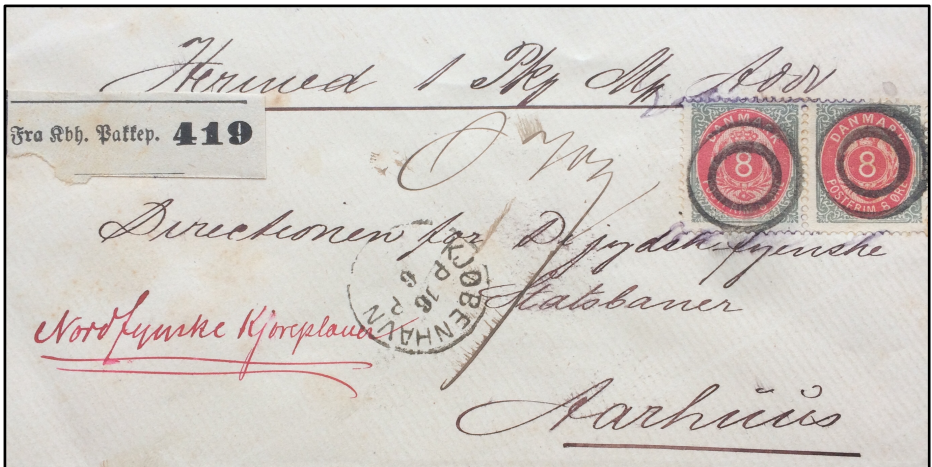 Hermed 1 Pkg Mk Addr
Fra Kbh. Pakkep. 419
DANMARK
8
POSTFRIM. 8 ØRE
DANMARK
8
POSTFRIM. 8 ØRE
Directionen for De jydsk-fyenske
Statsbaner
KJØBENHAVN
Nordfynske Kjøreplaner
Aarhuus